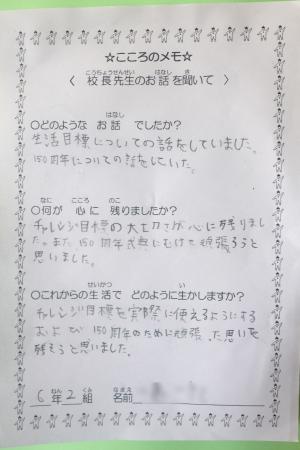 ☆こころのメモ☆
こうちょうせんせい はなし き
〈 校長先生のお話を聞いて 〉
はなし
○どのような お話 でしたか?
生活目標についての話をしていました。
150周年についての話をしていた。
なに こころ のこ
○何が 心に 残りましたか?
チャレンジ目標の大切さが心に残りまし
た。また、150周年式典にむけて頑張ろうと
思いました。
せいかつ い
○これからの生活で どのように生かしますか?
チャレンジ目標を実際に使えるようにする
および 150周年のために頑張った思いを
残そうと思いました。
ねん くみ なまえ
6年2組 名前